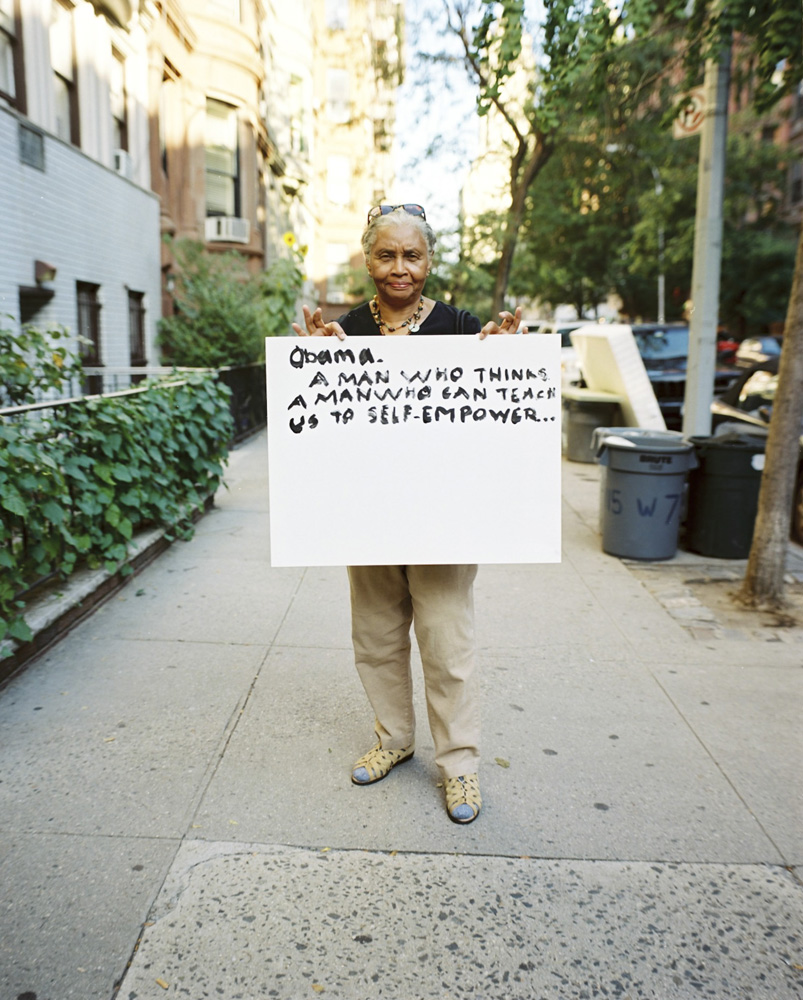 Obama.
A MAN WHO THINKS
A MAN WHO CAN TEACH
US TO SELF-EMPOWER..
BRUTE
15 W 7
P